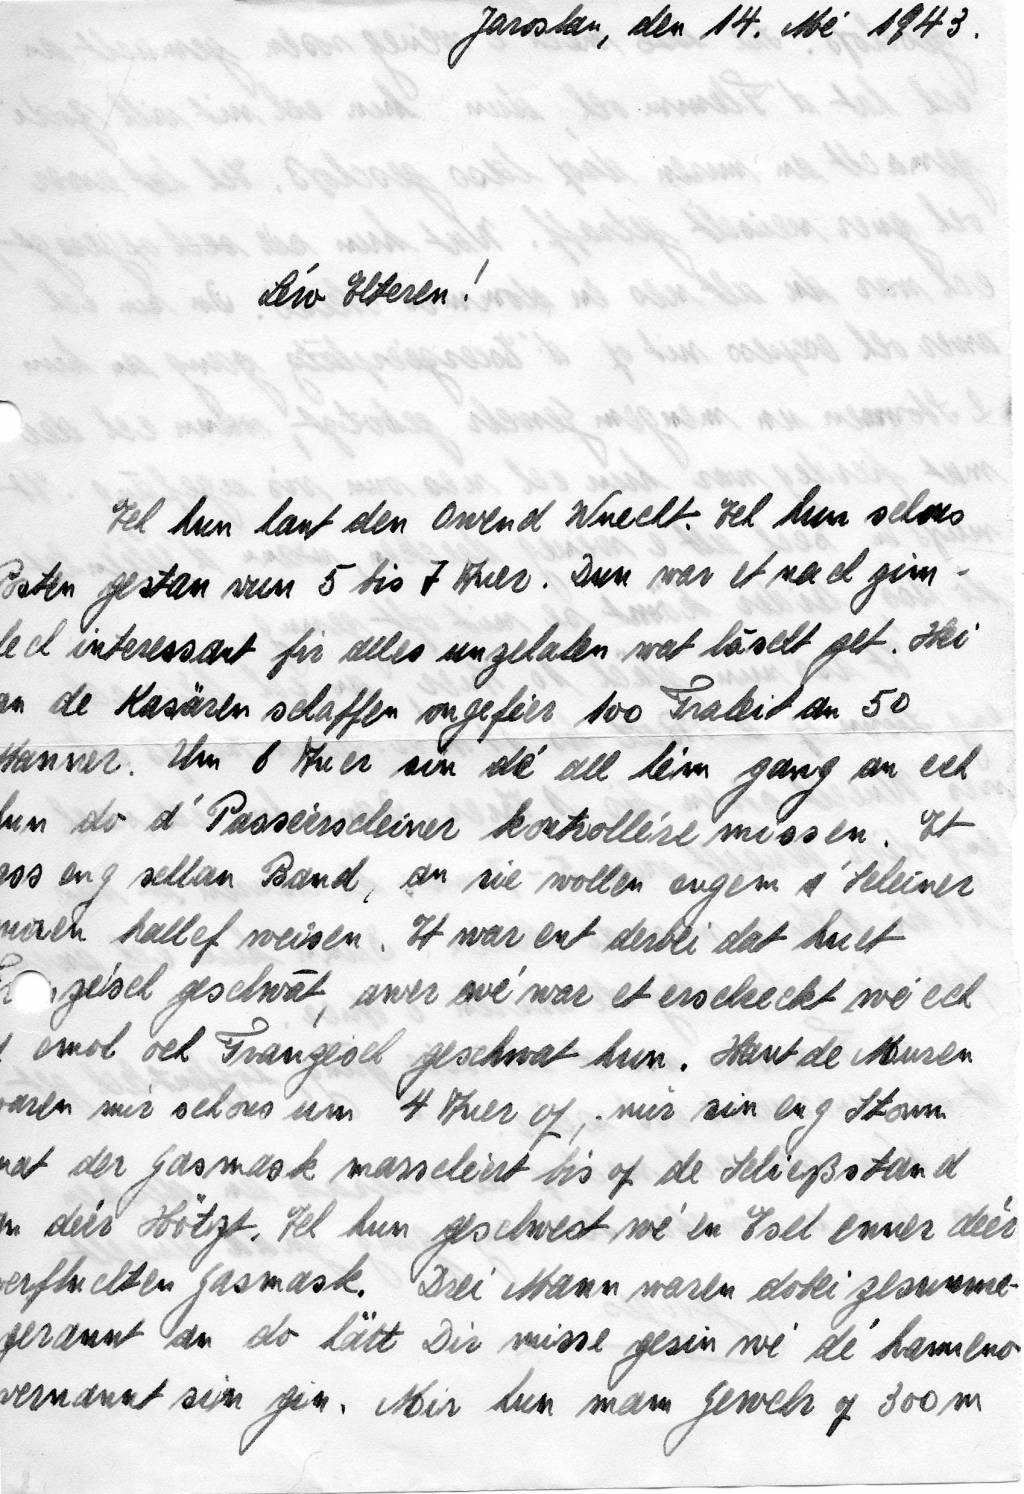 Jaroslau, den 14. Mé 1943.
Léw Elteren!
Ech hun haut den Owend Wuecht. Ech hun schons
Posten gestan vun 5 bis 7 Auer. Dun war et nach zim-
lech interessant fir alles unzehalen wat läscht get. Hei
an de Kasären schaffen ongeféer 100 Fraleit an 50
Männer. Um 6 Auer sin dé all héim gang an ech
hun do d' Passéerscheiner kontrolléere missen. Et
ass eng schlan Band, an sie wollen engem d' Scheiner
nuren hallef weisen. Et war ent derbei dat huet
Franzésch geschwat, awer wé war et erschreckt wé ech
emol och Franzésch geschwat hun. Haut de Muren
waren mir schons um 4 Auer op, mir sin eng Stonn
mat der Gasmask marschéert bis op de Schießstand
an déer Hëtzt. Ech hun geschwest wé en Esel enner déer
verfluchten Gasmask. Drei Mann waren dobei zesumme-
gerannt an do hätt Dir misse gesin wé dé hanneno
vernannt sin gin. Mir hun mam Gewehr op 300 m